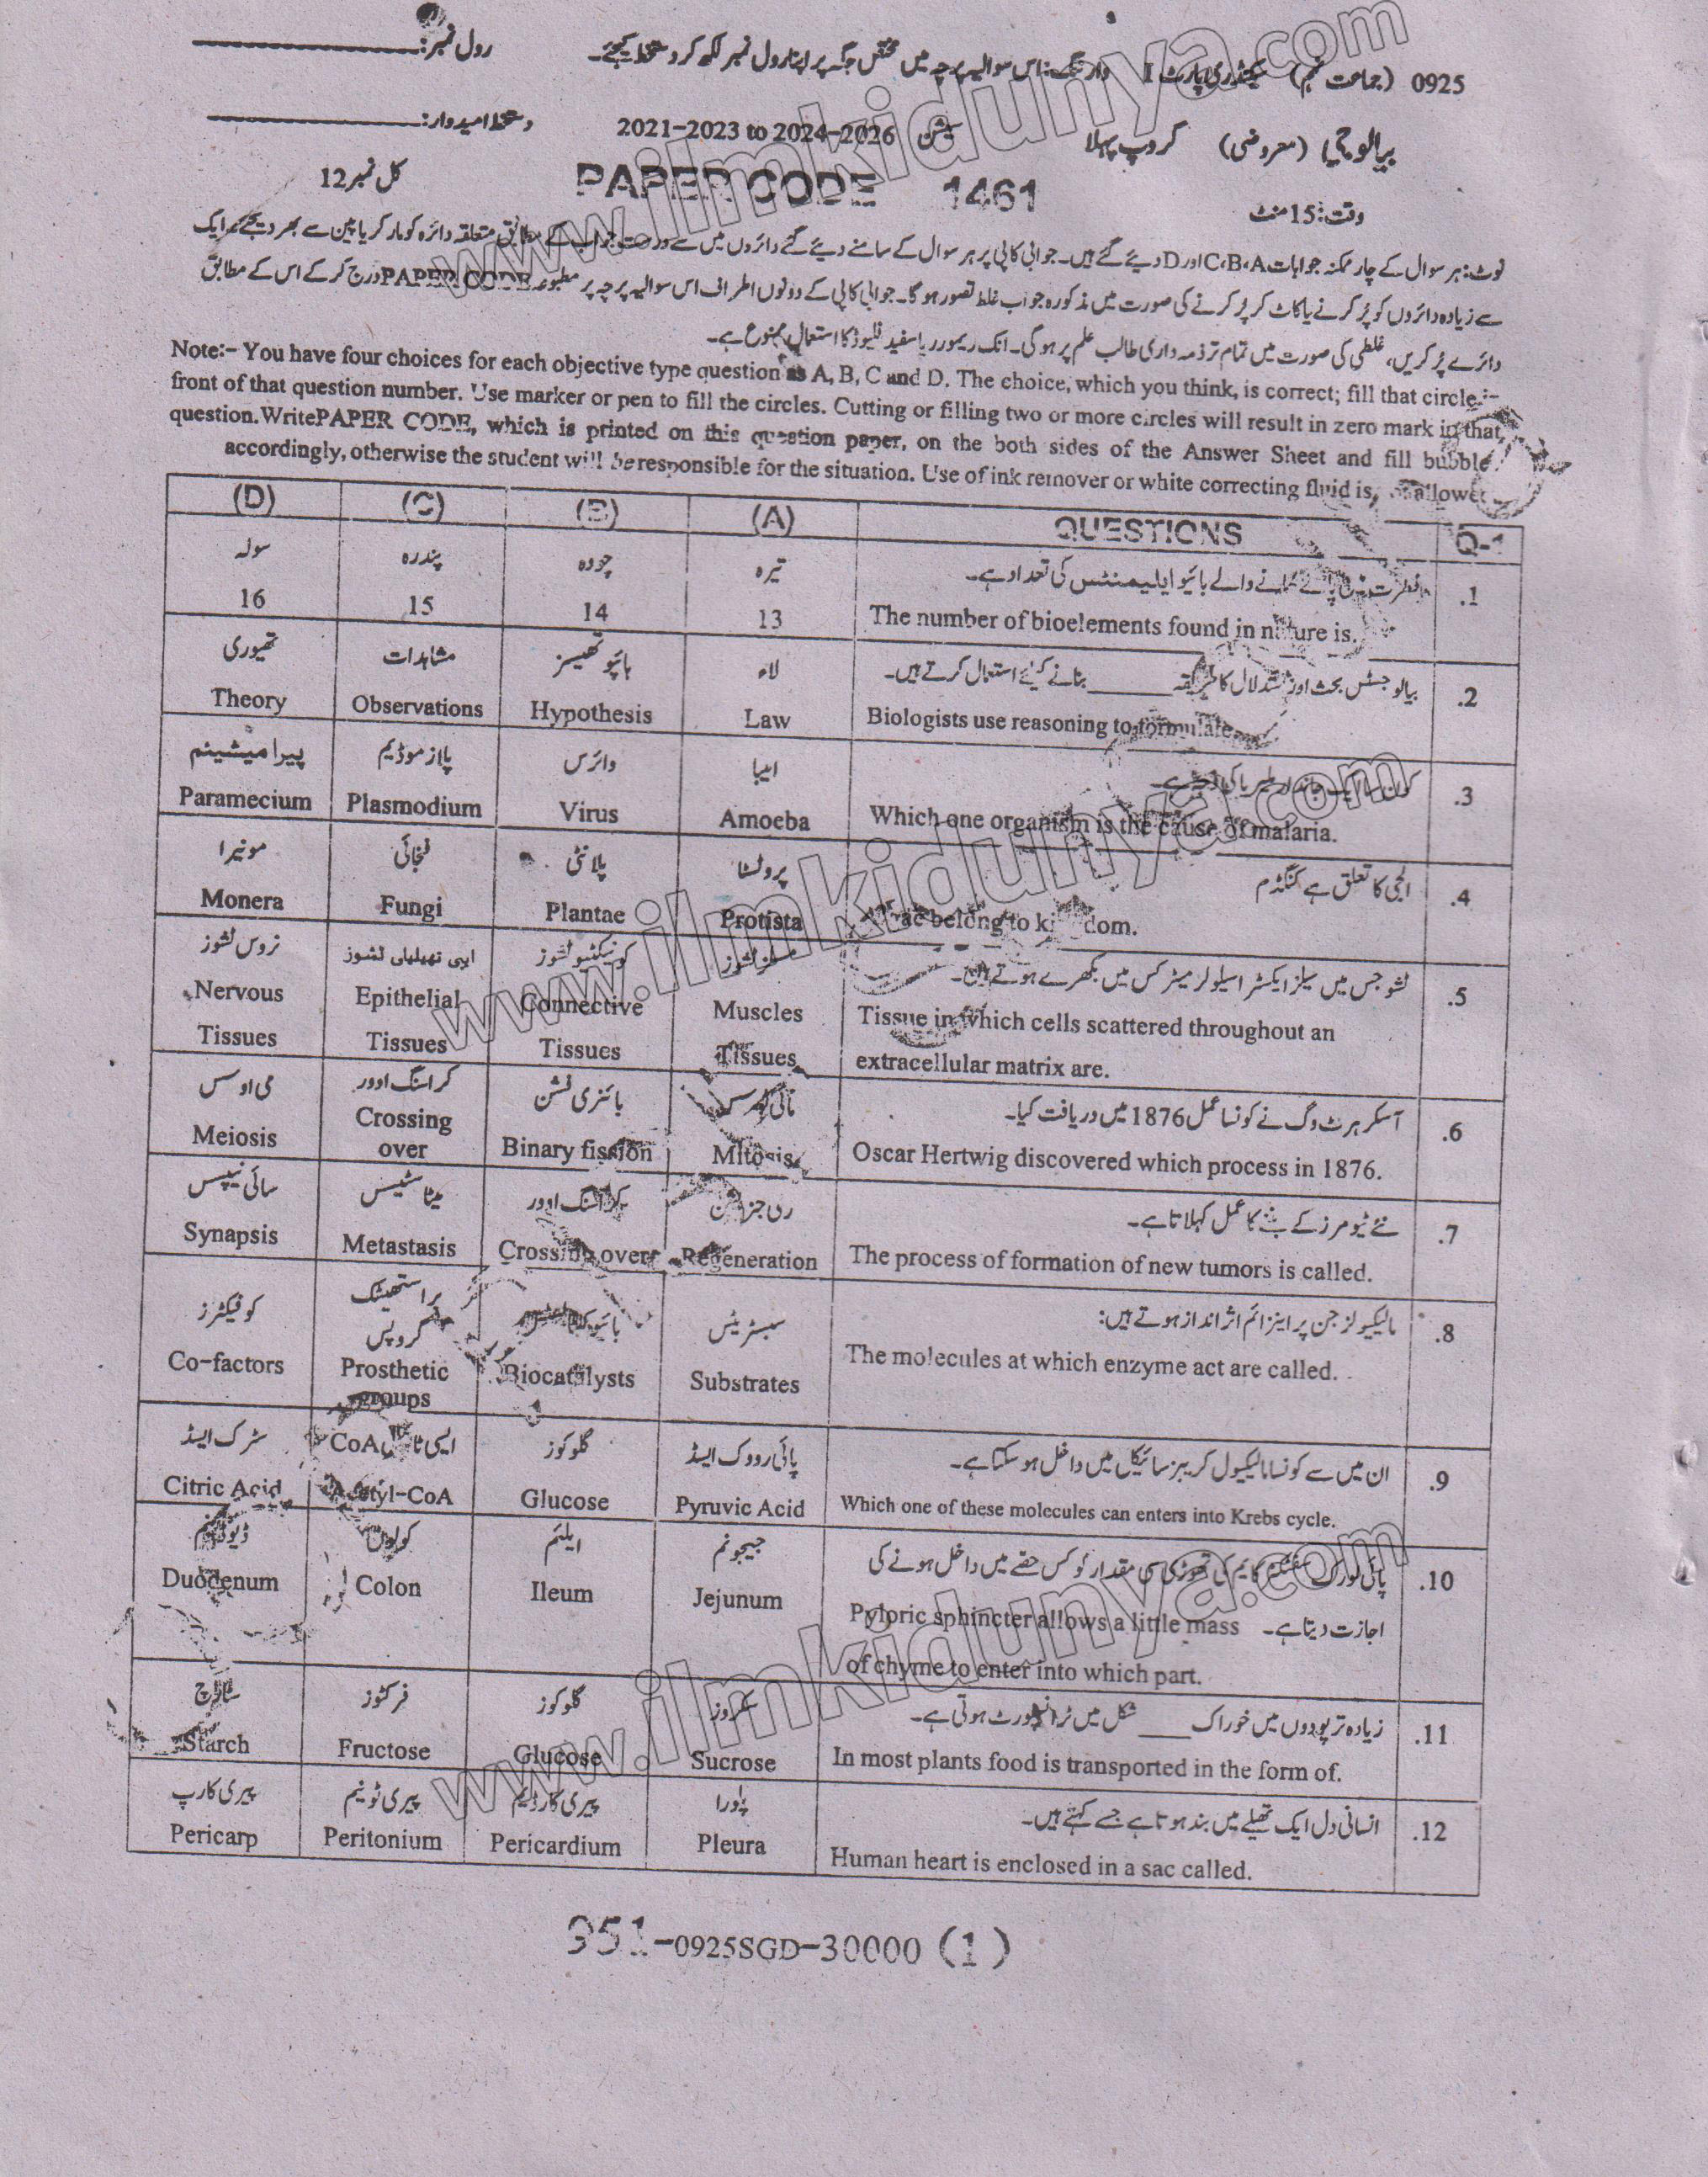 رول نمبر:
0925 (جماعت نہم) سیکنڈری پارٹ I وارننگ: اس سوالیہ پرچہ میں مختص جگہ پر اپنا رول نمبر لکھ کر دستخط کیجئے۔
دستخط امیدوار:
بیالوجی (معروضی) گروپ پہلا سیشن 2021-2023 to 2024-2026
کل نمبر 12
PAPER CODE 1461
وقت: 15 منٹ
نوٹ: ہر سوال کے چار ممکنہ جوابات C،B،A اور D دیئے گئے ہیں۔ جوابی کاپی پر ہر سوال کے سامنے دیئے گئے دائروں میں سے درست جواب کے مطابق متعلقہ دائرہ کو مارکر یا پین سے بھر دیجئے۔ ایک
سے زیادہ دائروں کو پُر کرنے یا کاٹ کر پُر کرنے کی صورت میں مذکورہ جواب غلط تصور ہو گا۔ جوابی کاپی کے دونوں اطراف اس سوالیہ پرچہ پر مطبوعہ PAPER CODE درج کر کے اس کے مطابق
دائرے پُر کریں، غلطی کی صورت میں تمام تر ذمہ داری طالب علم پر ہو گی۔ انک ریمور ر یا سفید فلیوڈ کا استعمال ممنوع ہے۔
Note:- You have four choices for each objective type question as A, B, C and D. The choice, which you think, is correct; fill that circle
front of that question number. Use marker or pen to fill the circles. Cutting or filling two or more circles will result in zero mark in that
question.WritePAPER CODE, which is printed on this question paper, on the both sides of the Answer Sheet and fill bubble
accordingly, otherwise the student will be responsible for the situation. Use of ink remover or white correcting fluid is
(D) (C) (B) (A) QUESTIONS Q-1
سولہ پندرہ چودہ تیرہ فطرت میں پائے جانے والے بائیو ایلیمنٹس کی تعداد ہے۔ .1
16 15 14 13 The number of bioelements found in nature is.
تھیوری مشاہدات ہائپوتھیسز لاء بیالوجسٹس بحث اور استدلال کا طریقہ ______ بنانے کیلئے استعمال کرتے ہیں۔ .2
Theory Observations Hypothesis Law Biologists use reasoning to formulate
پیرامیشیئم پلازموڈیم وائرس امیبا کون سا ایک جاندار ملیریا کی وجہ ہے۔ .3
Paramecium Plasmodium Virus Amoeba Which one organism is the cause of malaria.
مونیرا فنجائی پلانٹی پروٹسٹا الجی کا تعلق ہے کنگڈم .4
Monera Fungi Plantae Protista belong to kingdom.
نروس ٹشوز ایپی تھیلیلی ٹشوز کونیکٹیو ٹشوز مسلز ٹشوز ٹشو جس میں سیلز ایکسٹرا سیلولر میٹرکس میں بکھرے ہوتے ہیں۔ .5
Nervous Epithelial Connective Muscles Tissue in which cells scattered throughout an
Tissues Tissues Tissues Tissues extracellular matrix are.
می اوسس کراسنگ اوور بائنری فشن مائی ٹوسس آسکر ہرٹ وگ نے کونسا عمل 1876 میں دریافت کیا۔ .6
Meiosis Crossing over Binary fission Mitosis Oscar Hertwig discovered which process in 1876.
سائی نیپسس میٹا سٹیسس کراسنگ اوور ری جنریشن نئے ٹیومرز کے بننے کا عمل کہلاتا ہے۔ .7
Synapsis Metastasis Crossing over Regeneration The process of formation of new tumors is called.
کو فیکٹرز پراستھیٹک گروپس بائیو کیٹالسٹس سبسٹریٹس مالیکیولز جن پر اینزائم اثر انداز ہوتے ہیں: .8
Co-factors Prosthetic groups Biocatalysts Substrates The molecules at which enzyme act are called.
سٹرک ایسڈ ایسی ٹائل CoA گلوکوز پائی رووک ایسڈ ان میں سے کونسا مالیکیول کریبز سائیکل میں داخل ہو سکتا ہے۔ .9
Citric Acid Acetyl-CoA Glucose Pyruvic Acid Which one of these molecules can enters into Krebs cycle.
ڈیوڈینم کولون ایلیئم جیجونم پائی لورک سفنکٹر کائم کی تھوڑی سی مقدار کو کس حصے میں داخل ہونے کی .10
Duodenum Colon Ileum Jejunum Pyloric sphincter allows a little mass اجازت دیتا ہے۔
of chyme to enter into which part.
سٹارچ فرکٹوز گلوکوز سکروز زیادہ تر پودوں میں خوراک ____ شکل میں ٹرانسپورٹ ہوتی ہے۔ .11
Starch Fructose Glucose Sucrose In most plants food is transported in the form of.
پیری کارپ پیری ٹونیم پیری کارڈیم پلورا انسانی دل ایک تھیلے میں بند ہوتا ہے جسے کہتے ہیں۔ .12
Pericarp Peritonium Pericardium Pleura Human heart is enclosed in a sac called.
951-0925SGD-30000 (1)
www.ilmkidunya.com
www.ilmkidunya.com
www.ilmkidunya.com